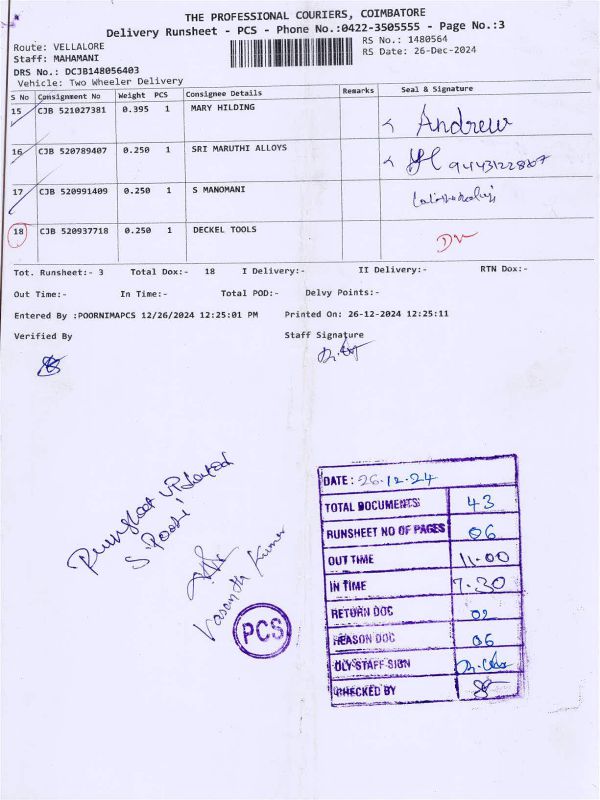 THE PROFESSIONAL COURIERS, COIMBATORE
Delivery Runsheet - PCS - Phone No.:0422-3505555 - Page No.:3
Route: VELLALORE
RS No.: 1480564
Staff: MAHAMANI
RS Date: 26-Dec-2024
DRS No.: DCJB148056403
Vehicle: Two Wheeler Delivery
S No Consignment No Weight PCS Consignee Details Remarks Seal & Signature
15 CJB 521027381 0.395 1 MARY HILDING Andrew
16 CJB 520789407 0.250 1 SRI MARUTHI ALLOYS
17 CJB 520991409 0.250 1 S MANOMANI
18 CJB 520937718 0.250 1 DECKEL TOOLS
Tot. Runsheet:- 3 Total Dox:- 18 I Delivery:- II Delivery:- RTN Dox:-
Out Time:- In Time:- Total POD:- Delvy Points:-
Entered By :POORNIMAPCS 12/26/2024 12:25:01 PM Printed On: 26-12-2024 12:25:11
Verified By Staff Signature
Vasantha Kumar
PCS
DATE: 26.12.24
TOTAL DOCUMENTS 43
RUNSHEET NO OF PAGES 06
OUT TIME 11.00
IN TIME 7.30
RETURN DOC 02
REASON DOC 06
DLY STAFF SIGN
CHECKED BY